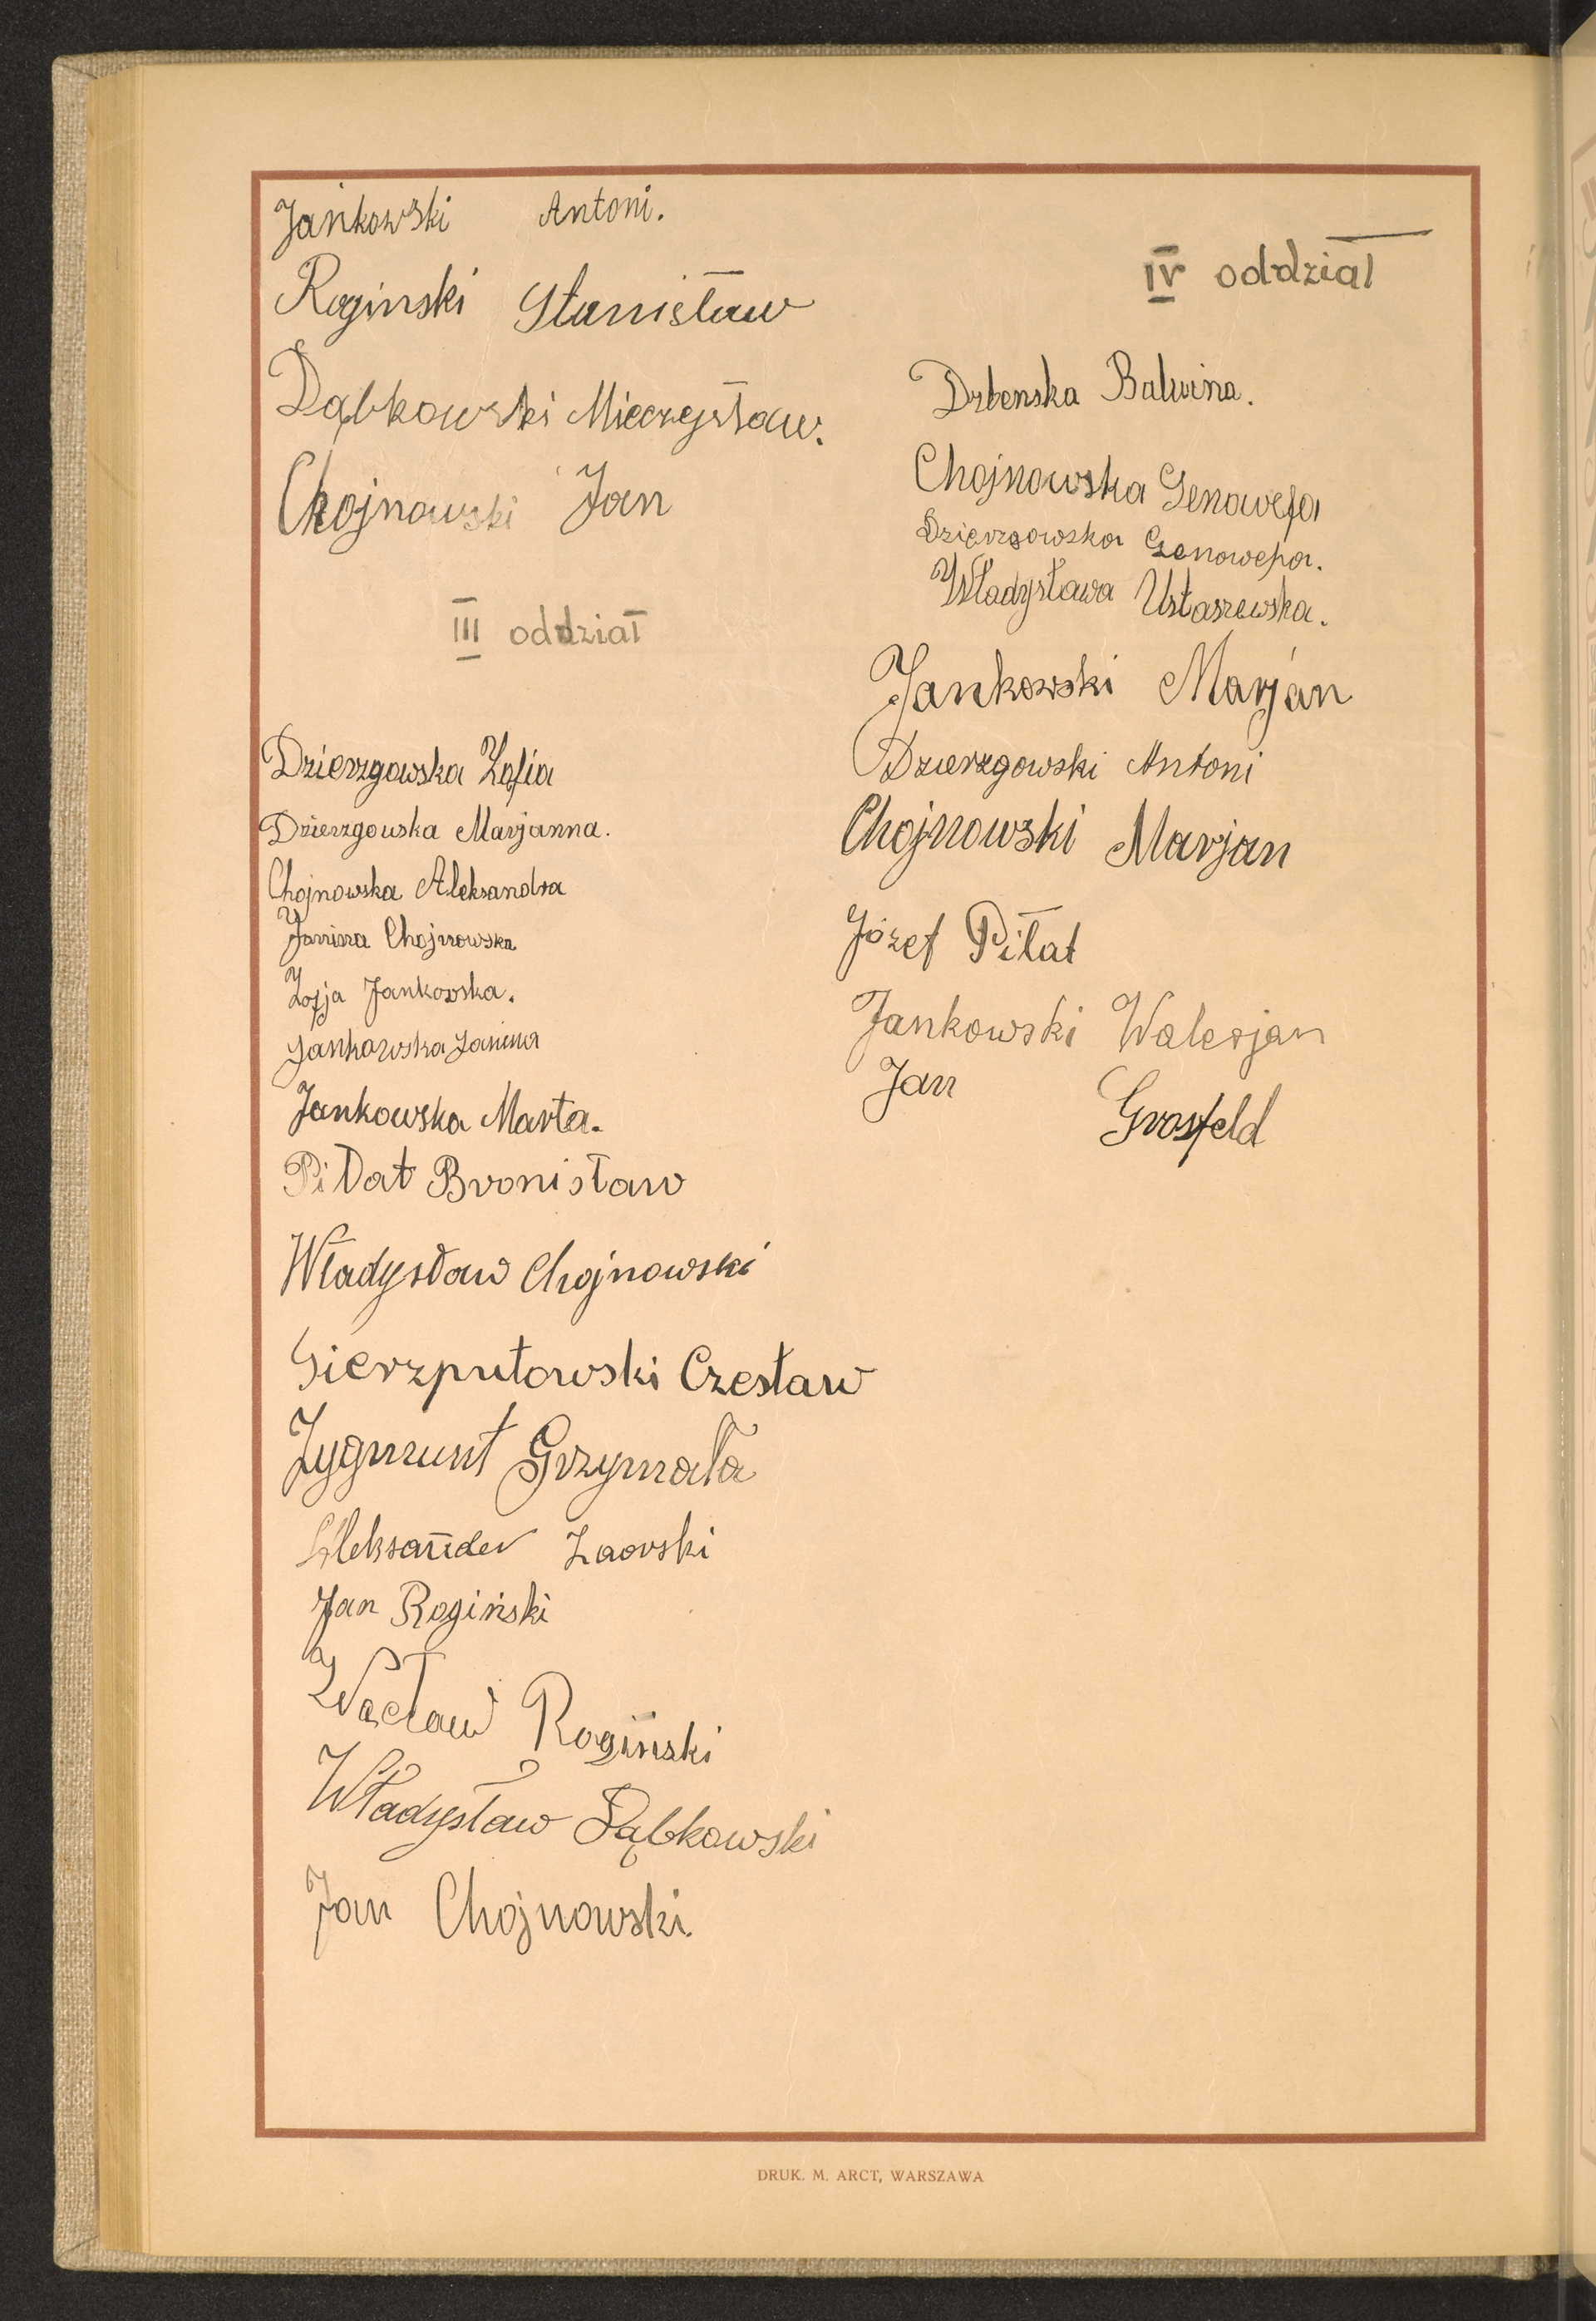 Jankowski Antoni.
Roginski Stanisław
Dąbkowski Mieczysław.
Chojnowski Jan
III oddział
Dzierzgowska Zofia
Dzierzgouska Marjanna.
Chojnowska Aleksandra
Janina Chojnowska
Zofja Jankowska.
Jankowska Janina
Jankowska Marta.
Piłat Bronisław
Władysław Chojnowski
Gierzputowski Czesław
Zygmunt Grzymała
Aleksander
Jan Rogiński
Wacław Rogiński
Władysław Dąbkowski
Jan Chojnowski.
IV oddział
Balwina.
Chojnowska Genowefa
Dzierzgowska Genowefa.
Władysława Ustaszewska.
Jankowski Marjan
Dzierzgowski Antoni
Chojnowski Marjan
Józef Piłat
Jankowski Walerjan
Jan Grosfeld
DRUK. M. ARCT, WARSZAWA